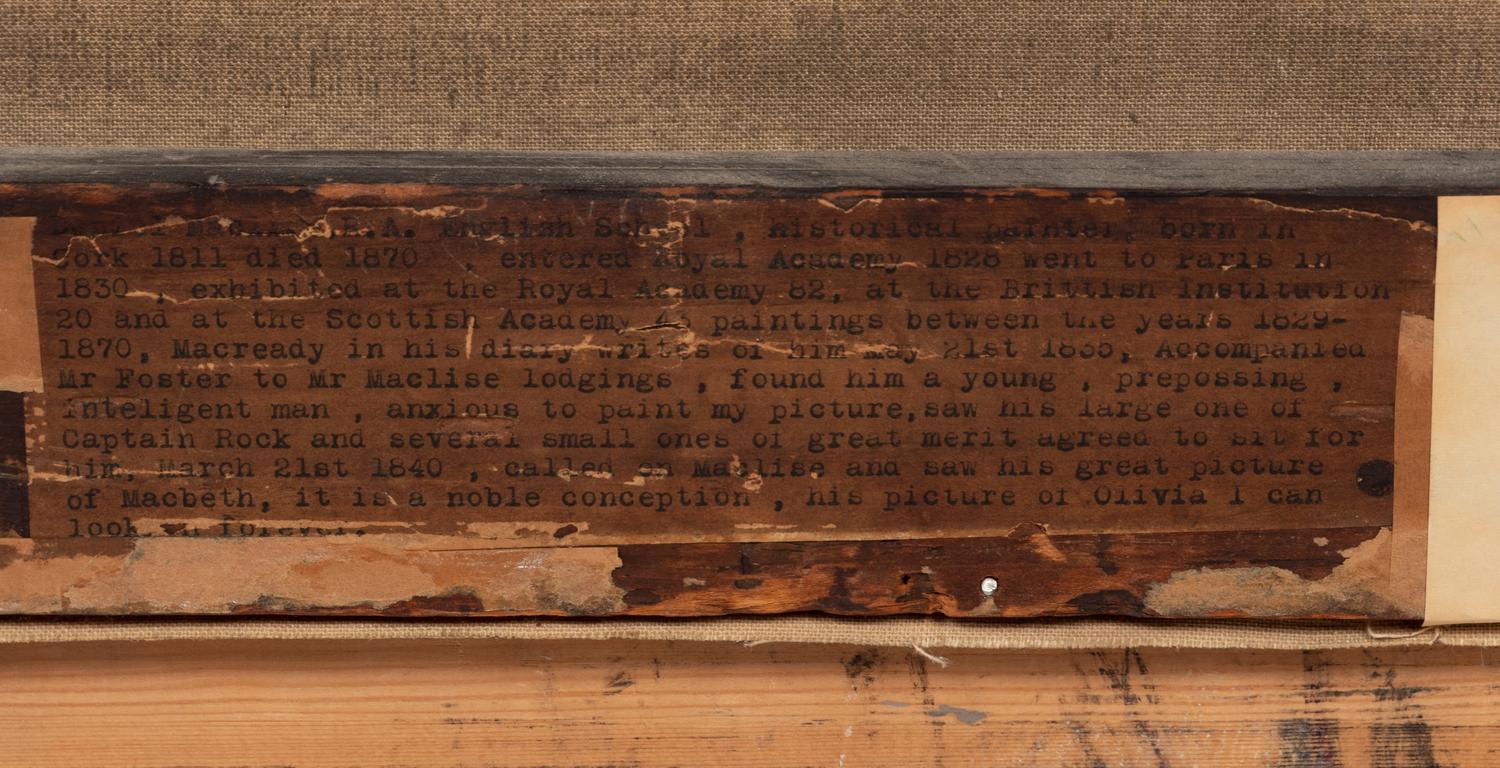 Maclise, R.A. English School , Historical painter, born in
York 1811 died 1870 , entered Royal Academy 1828 went to Paris in
1830 , exhibited at the Royal Academy 82, at the Brittish Institution
20 and at the Scottish Academy paintings between the years 1829-
1870, Macready in his diary writes of him May 21st 1835, Accompanied
Mr Foster to Mr Maclise lodgings , found him a young , prepossing ,
inteligent man , anxious to paint my picture,saw his large one of
Captain Rock and several small ones of great merit agreed to sit for
him, March 21st 1840 , called on Maclise and saw his great picture
of Macbeth, it is a noble conception , his picture of Olivia I can
look on forever.